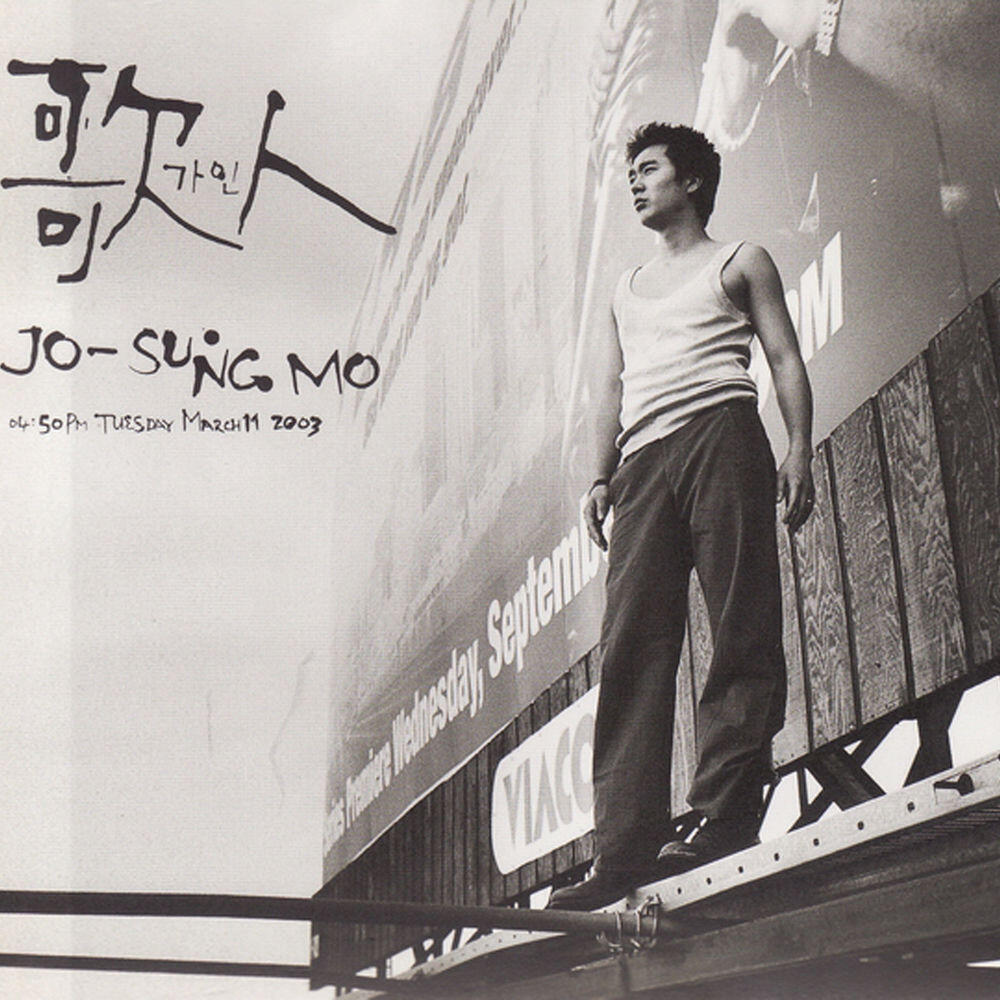 歌人
가인
JO-SUNG MO
04:50PM TUESDAY MARCH 11 2003
Premiere Wednesday, Septemb
VIACO